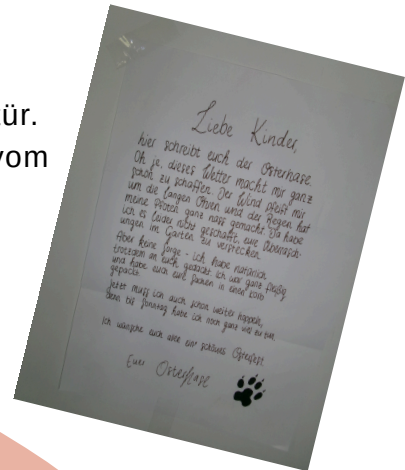 ür.
vom
Liebe Kinder,
hier schreibt euch der Osterhase.
Oh je, dieses Wetter macht mir ganz
schön zu schaffen. Der Wind pfeift mir
um die langen Ohren und der Regen hat
meine Pfoten ganz nass gemacht. Da habe
ich es leider nicht geschafft, eure Überrasch-
ungen im Garten zu verstecken.
Aber keine Sorge - ich habe natürlich
trotzdem an euch gedacht. Ich war ganz fleißig
und habe euch eure Sachen in einen Korb
gepackt.
Jetzt muss ich auch schon weiter hoppeln,
denn bis Sonntag habe ich noch ganz viel zu tun.
Ich wünsche euch allen ein schönes Osterfest.
Euer Osterhase